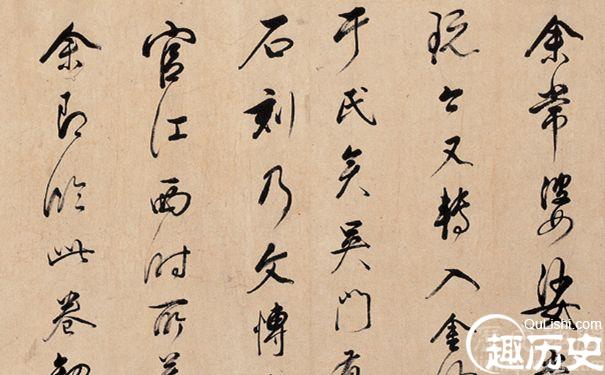 余常婆娑
玩今又轉入金
于氏矣吳門有
石刻乃文博
官江西時所
余即臨此卷
QuLiShi.com
趣历史